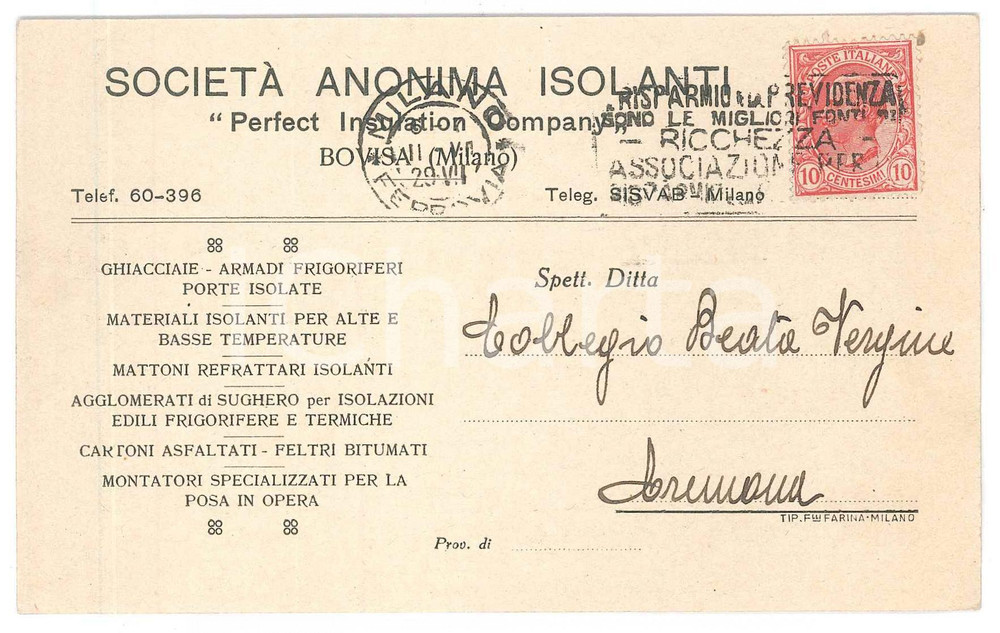 SOCIETÀ ANONIMA ISOLANTI
“ Perfect Insulation Company „
BOVISA (Milano)
Telef. 60-396
Teleg. SISVAB - Milano
MILANO
FERROVIA
POSTE ITALIANE
10 CENTESIMI 10
RISPARMIO E PREVIDENZA
SONO LE MIGLIORI FONTI DI
- RICCHEZZA -
ASSOCIAZIONE PER
GHIACCIAIE - ARMADI FRIGORIFERI
PORTE ISOLATE
MATERIALI ISOLANTI PER ALTE E
BASSE TEMPERATURE
MATTONI REFRATTARI ISOLANTI
AGGLOMERATI di SUGHERO per ISOLAZIONI
EDILI FRIGORIFERE E TERMICHE
CARTONI ASFALTATI - FELTRI BITUMATI
MONTATORI SPECIALIZZATI PER LA
POSA IN OPERA
Spett. Ditta
Collegio Beata Vergine
Cremona
TIP. F.lli FARINA-MILANO
Prov. di